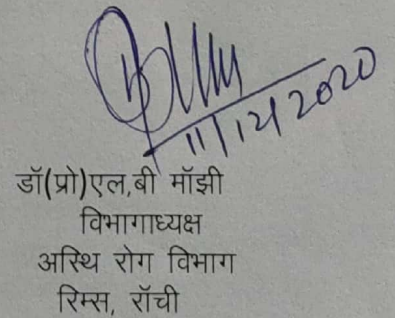 11/12/2020
डॉ(प्रो)एल,बी मॉझी
विभागाध्यक्ष
अस्थि रोग विभाग
रिम्स, रॉची